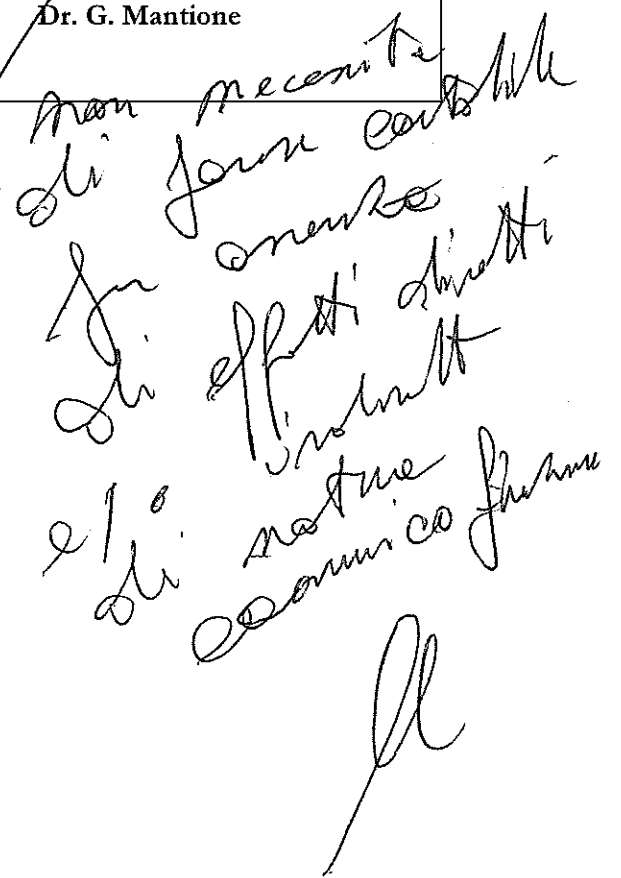 Dr. G. Mantione
non necessita
di parere contabile
per assenza
di effetti diretti
e/o indiretti
di natura
economico finanz